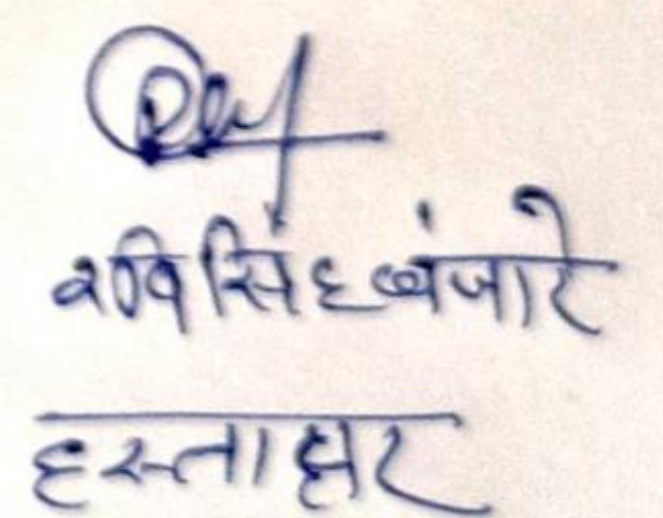 रवि सिंह बंजारे
हस्ताक्षर